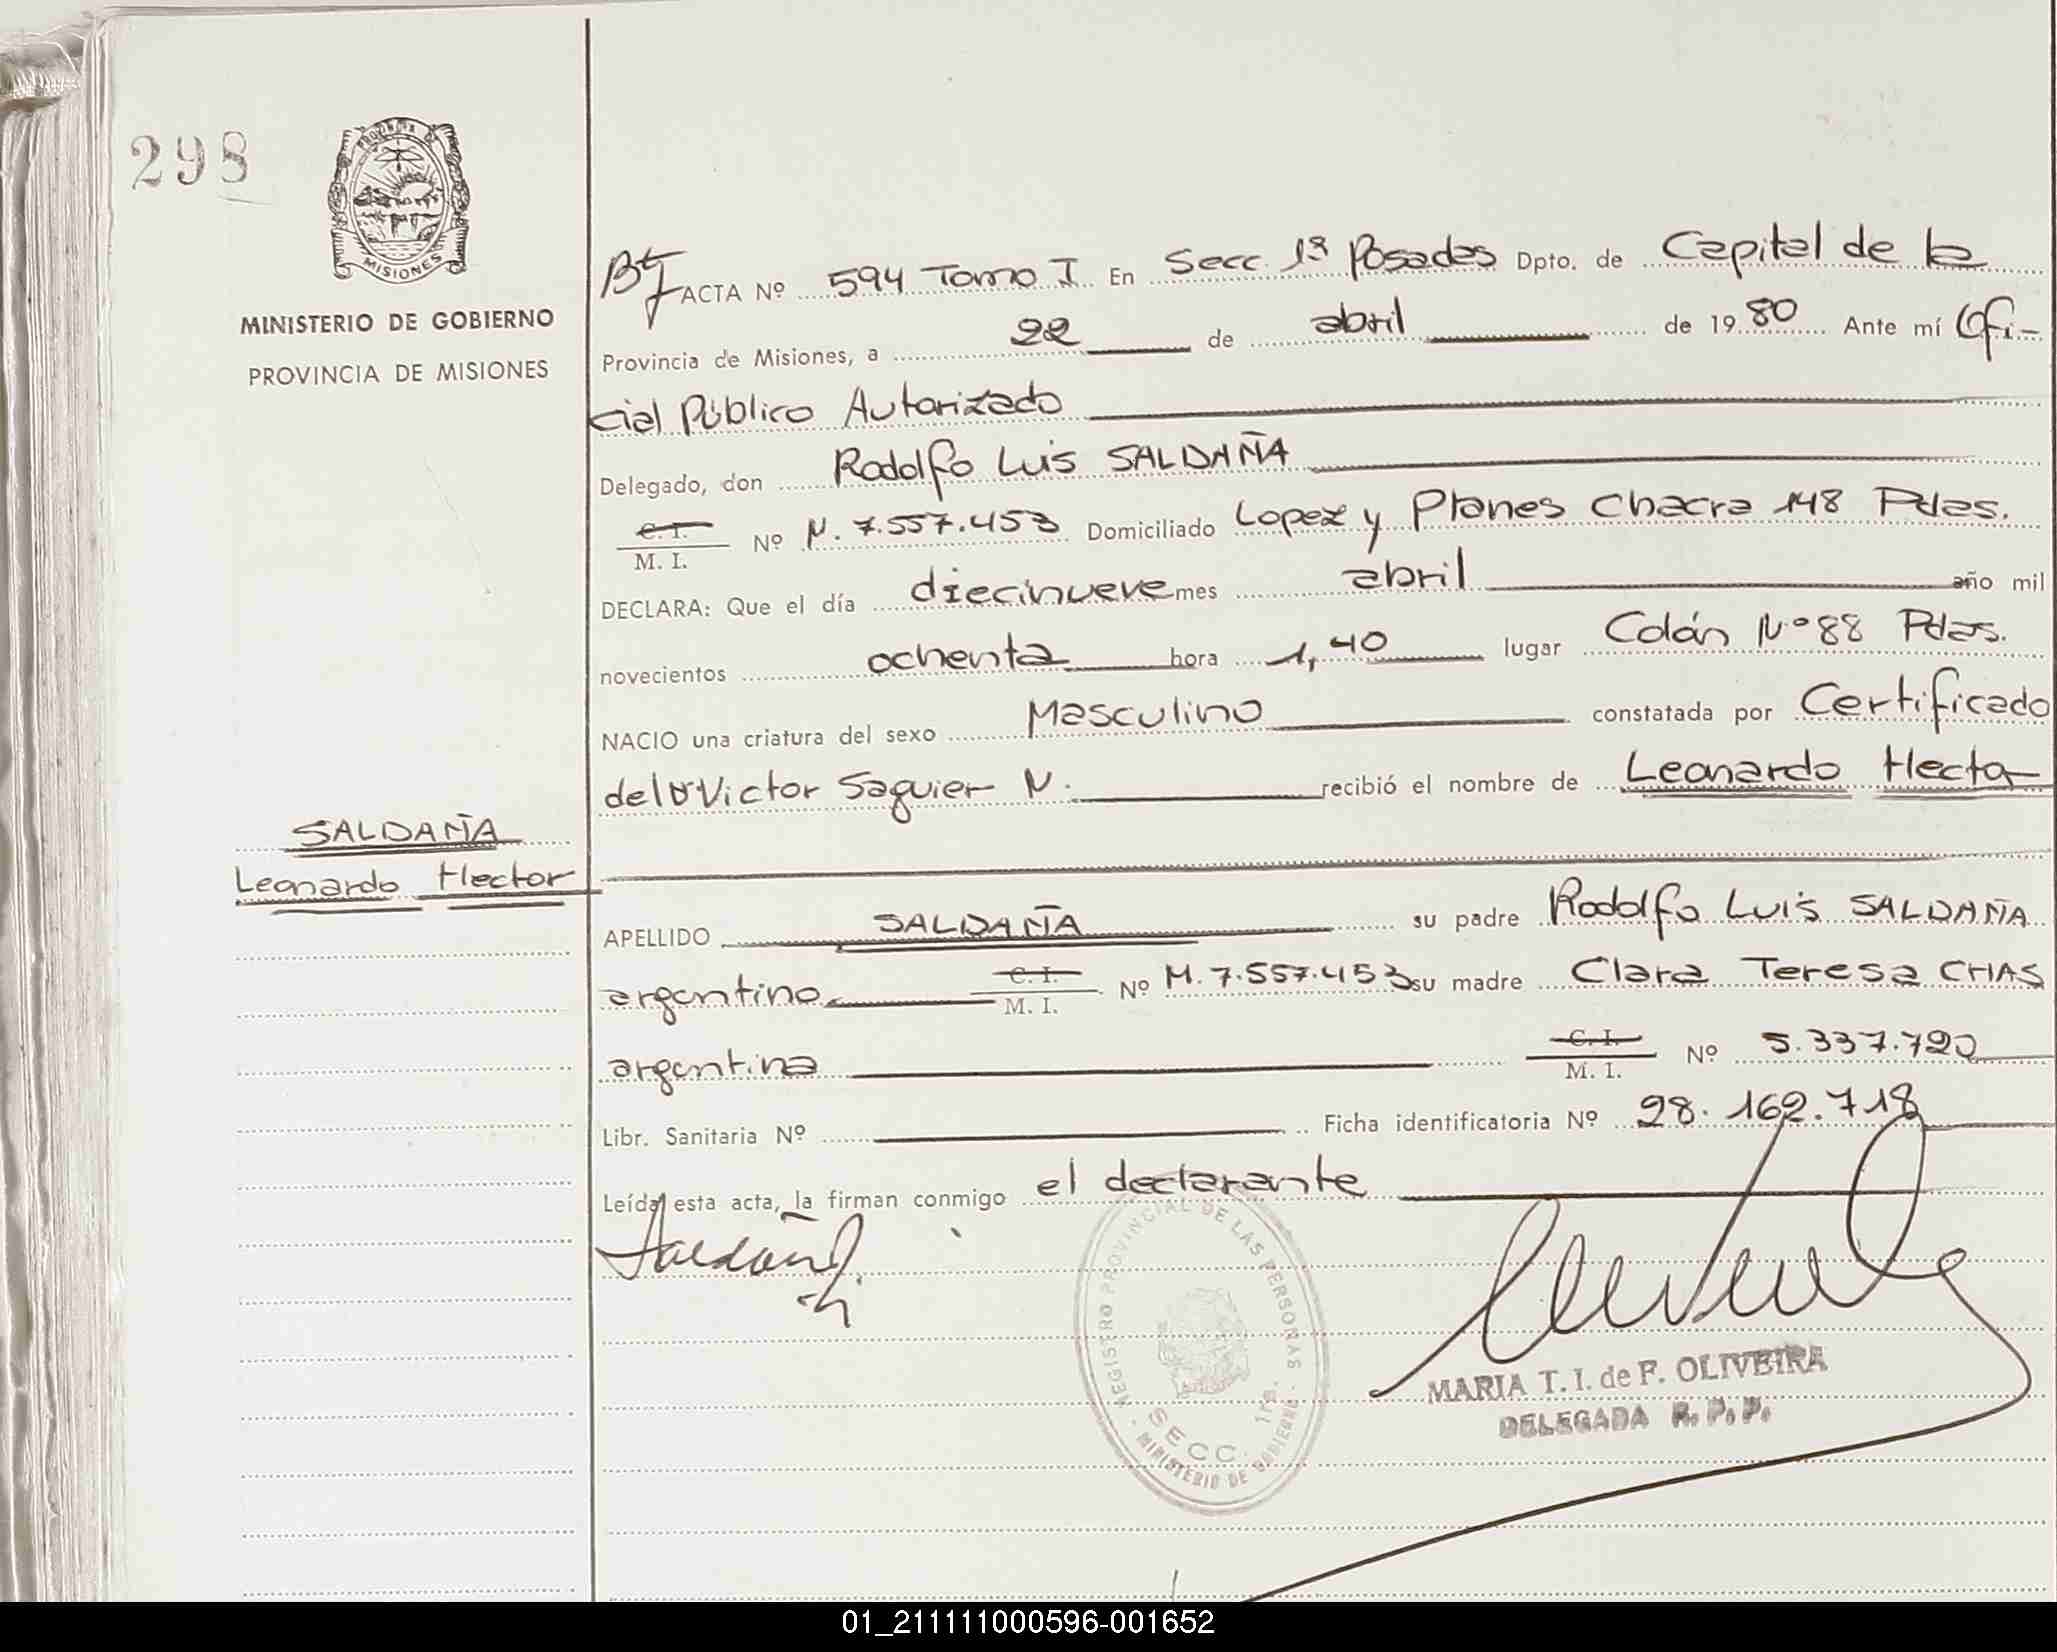 298
PROVINCIA
MISIONES
MINISTERIO DE GOBIERNO
PROVINCIA DE MISIONES
ACTA Nº 594 Tomo I En Secc. 1ª Posadas Dpto. de Capital de la
Provincia de Misiones, a 22 de abril de 1980 Ante mí Ofi-
cial Público Autorizado
Delegado, don Rodolfo Luis SALDAÑA
C. I.
M. I. Nº M. 7.557.453 Domiciliado Lopez y Planes Chacra 148 Pdas.
DECLARA: Que el día diecinueve mes abril año mil
novecientos ochenta hora 1,40 lugar Colón Nº 88 Pdas.
NACIO una criatura del sexo Masculino constatada por Certificado
del Victor Saguier N. recibió el nombre de Leonardo Hector
SALDAÑA
Leonardo Hector
APELLIDO SALDAÑA su padre Rodolfo Luis SALDAÑA
argentino C. I.
M. I. Nº M. 7.557.453 su madre Clara Teresa CHAS
argentina C. I.
M. I. Nº 5.337.720
Libr. Sanitaria Nº Ficha identificatoria Nº 28.162.718
Leída esta acta, la firman conmigo el declarante
Saldaña
REGISTRO PROVINCIAL DE LAS PERSONAS
SECC. 1ra.
MINISTERIO DE GOBIERNO
MARIA T. I. de F. OLIVEIRA
DELEGADA R. P. P.
01_211111000596-001652